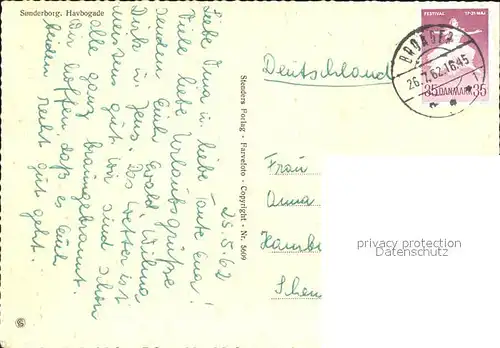 Sønderborg, Havbogade
FESTIVAL 17-31 MAJ
BROAGER
26.7.62.16.45
35 DANMARK 35
Deutschland
Stenders Forlag - Farvefoto - Copyright - Nr. 5609
25.5.62
Liebe Oma u. liebe Tante Ena!
Viele liebe Urlaubsgrüße
senden Euch Ewald, Wilma
Dirk u. Jens. Das Wetter ist
gut. Wir sind schon
alle ganz braungebrannt.
Wir hoffen, daß es Euch
beiden recht gut geht.
Frau
Anna
Hambu
privacy protection
Datenschutz